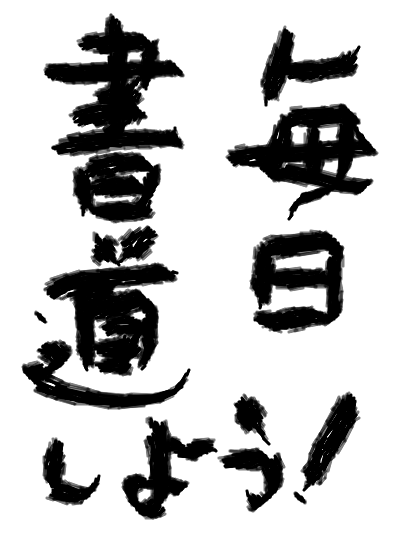 毎日
書道
しよう!